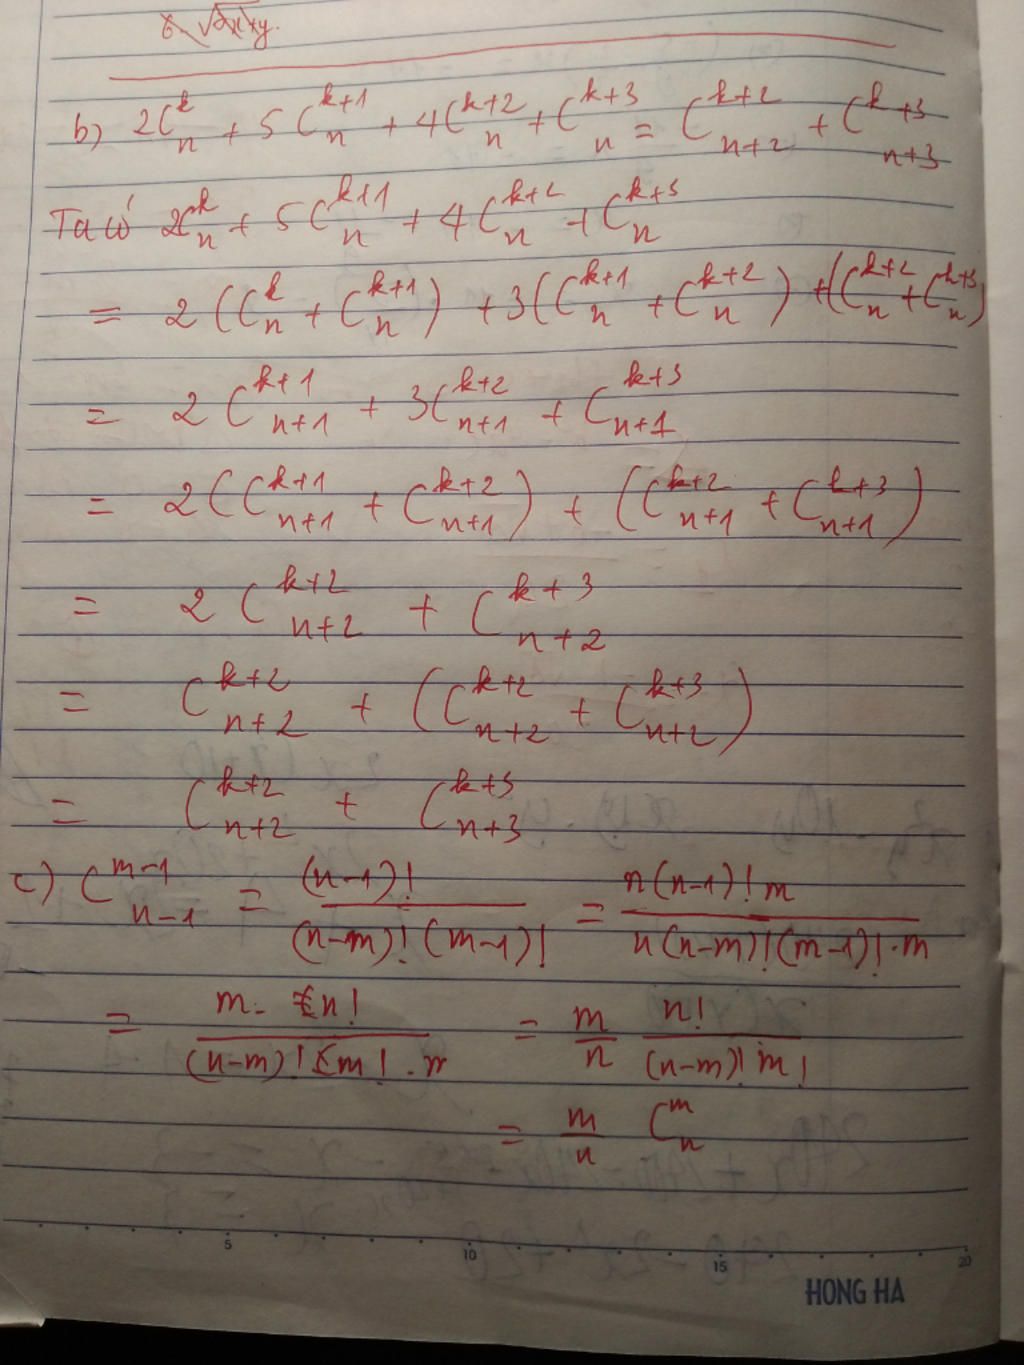 6. √2x+y.
b) 2C_n^k + 5C_n^{k+1} + 4C_n^{k+2} + C_n^{k+3} = C_{n+2}^{k+2} + C_{n+3}^{k+3}
Ta có 2C_n^k + 5C_n^{k+1} + 4C_n^{k+2} + C_n^{k+3}
= 2(C_n^k + C_n^{k+1}) + 3(C_n^{k+1} + C_n^{k+2}) + (C_n^{k+2} + C_n^{k+3})
= 2C_{n+1}^{k+1} + 3C_{n+1}^{k+2} + C_{n+1}^{k+3}
= 2(C_{n+1}^{k+1} + C_{n+1}^{k+2}) + (C_{n+1}^{k+2} + C_{n+1}^{k+3})
= 2C_{n+2}^{k+2} + C_{n+2}^{k+3}
= C_{n+2}^{k+2} + (C_{n+2}^{k+2} + C_{n+2}^{k+3})
= C_{n+2}^{k+2} + C_{n+3}^{k+3}
c) C_{n-1}^{m-1} = (n-1)! / (n-m)!(m-1)! = n(n-1)!m / n(n-m)!(m-1)!.m
= m. n! / (n-m)! m! . n = m/n n! / (n-m)! m!
= m/n C_n^m
5 10 15 20
HONG HA